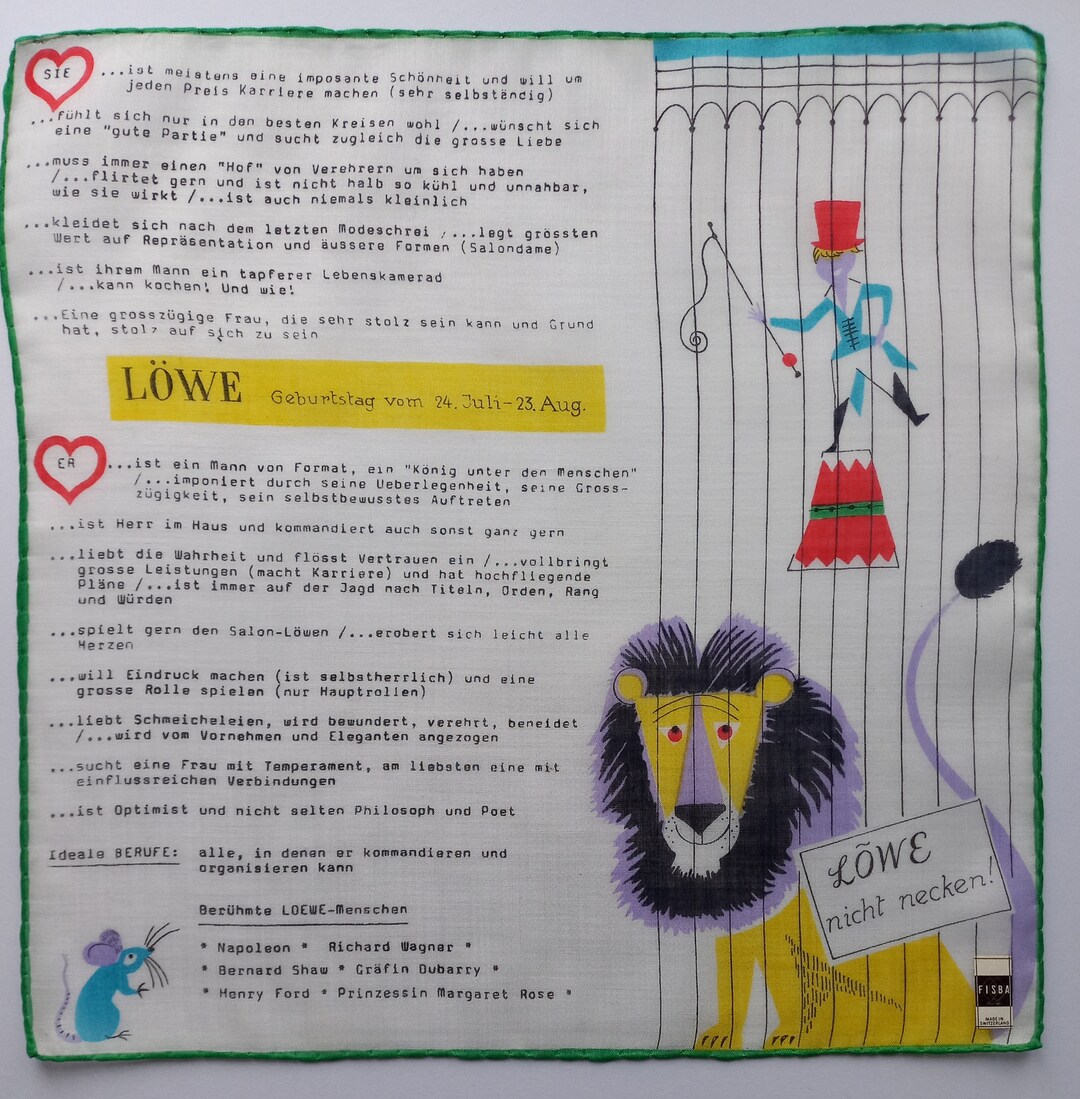 SIE
...ist meistens eine imposante Schönheit und will um
jeden Preis Karriere machen (sehr selbständig)
...fühlt sich nur in den besten Kreisen wohl /...wünscht sich
eine "gute Partie" und sucht zugleich die grosse Liebe
...muss immer einen "Hof" von Verehrern um sich haben
/...flirtet gern und ist nicht halb so kühl und unnahbar,
wie sie wirkt /...ist auch niemals kleinlich
...kleidet sich nach dem letzten Modeschrei /...legt grössten
Wert auf Repräsentation und äussere Formen (Salondame)
...ist ihrem Mann ein tapferer Lebenskamerad
/...kann kochen! Und wie!
...Eine grosszügige Frau, die sehr stolz sein kann und Grund
hat, stolz auf sich zu sein
LÖWE Geburtstag vom 24. Juli-23. Aug.
ER
...ist ein Mann von Format, ein "König unter den Menschen"
/...imponiert durch seine Ueberlegenheit, seine Gross-
zügigkeit, sein selbstbewusstes Auftreten
...ist Herr im Haus und kommandiert auch sonst ganz gern
...liebt die Wahrheit und flösst Vertrauen ein /...vollbringt
grosse Leistungen (macht Karriere) und hat hochfliegende
Pläne /...ist immer auf der Jagd nach Titeln, Orden, Rang
und Würden
...spielt gern den Salon-Löwen /...erobert sich leicht alle
Herzen
...will Eindruck machen (ist selbstherrlich) und eine
grosse Rolle spielen (nur Hauptrollen)
...liebt Schmeicheleien, wird bewundert, verehrt, beneidet
/...wird vom Vornehmen und Eleganten angezogen
...sucht eine Frau mit Temperament, am liebsten eine mit
einflussreichen Verbindungen
...ist Optimist und nicht selten Philosoph und Poet
Ideale BERUFE: alle, in denen er kommandieren und
organisieren kann
Berühmte LOEWE-Menschen
* Napoleon * Richard Wagner *
* Bernard Shaw * Gräfin Dubarry *
* Henry Ford * Prinzessin Margaret Rose *
LÖWE
nicht necken!
FISBA
MADE IN
SWITZERLAND